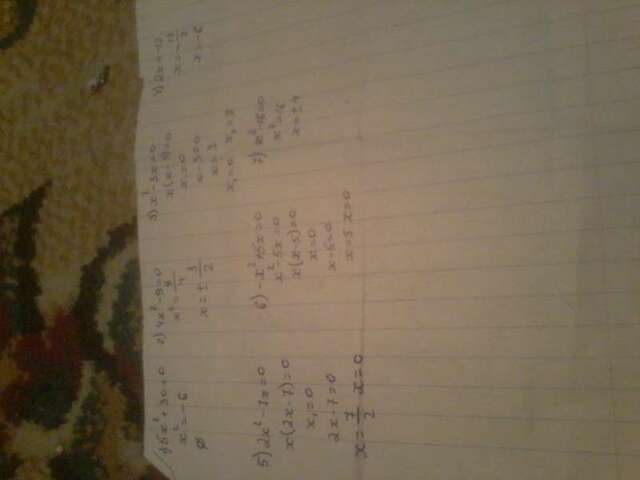 1) 5x²+30=0
x²=-6
∅
2) 4x²-9=0
x²=9/4
x=±3/2
3) x²-3x=0
x(x-3)=0
x₁=0
x-3=0
x=3
x₁=0 x₂=3
4) 2x=-12
x=-12/2
x=-6
5) 2x²-7x=0
x(2x-7)=0
x₁=0
2x-7=0
x=7/2 x=0
6) -x²+5x=0
x²-5x=0
x(x-5)=0
x=0
x-5=0
x=5 x=0
7) x²-16=0
x²=16
x=±4